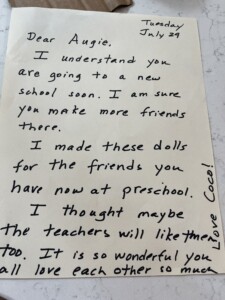 Tuesday
July 29
Dear Augie,
I understand you
are going to a new
school soon. I am sure
you make more friends
there.
I made these dolls
for the friends you
have now at preschool.
I thought maybe
the teachers will like them
too. It is so wonderful you
all love each other so much
Love Coco!